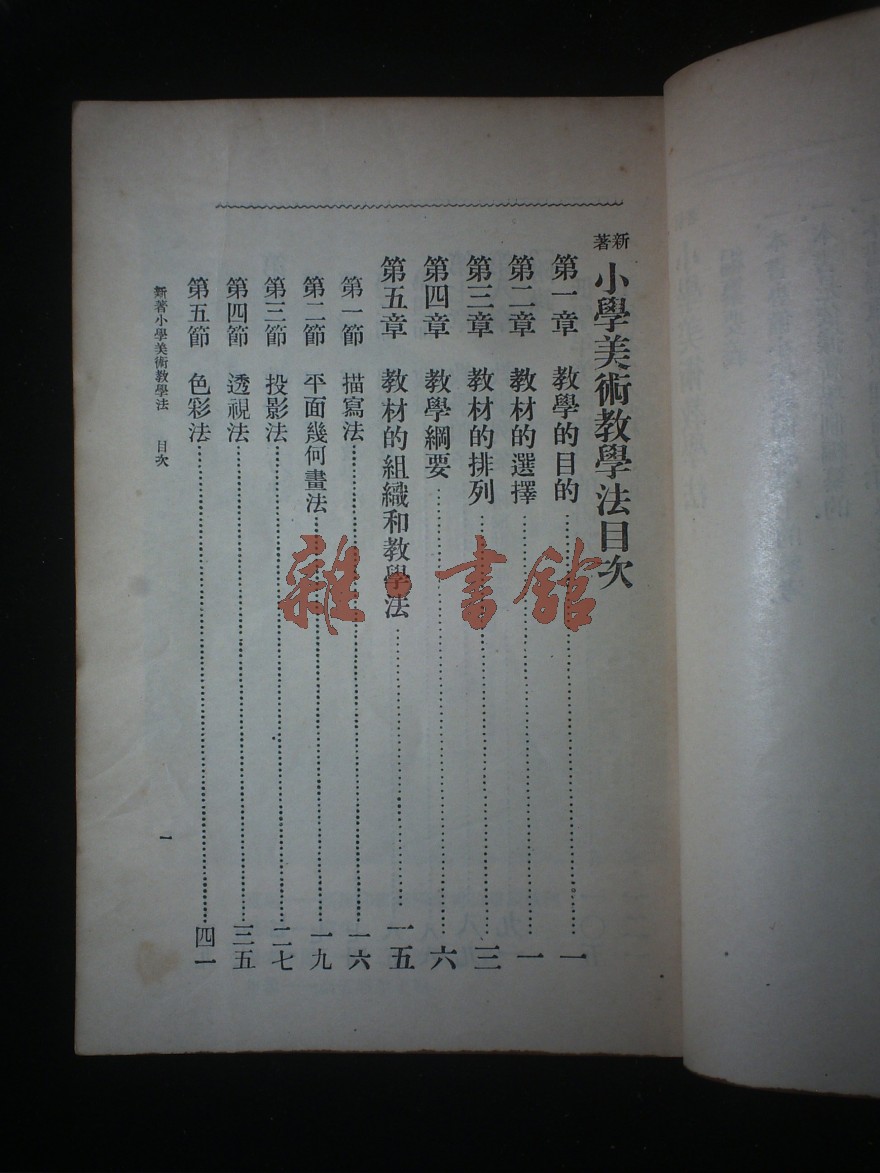 新著 小學美術教學法目次
第一章 教學的目的 一
第二章 教材的選擇 一
第三章 教材的排列 三
第四章 教學綱要 六
第五章 教材的組織和教學法 一五
第一節 描寫法 一六
第二節 平面幾何畫法 一九
第三節 投影法 二七
第四節 透視法 三五
第五節 色彩法 四一
新著小學美術教學法 目次 一
雜·書館